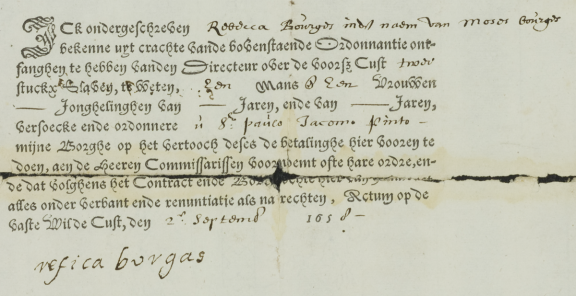 ICk ondergeschreven Rebecca Bourges in des naem van Moses bourges
bekenne uyt crachte vande bovenstaende Ordonnantie ont-
fanghen te hebben vanden Directeur over de voorsz Cust twee
stucx Slaven, te weten, Een Mans & Een Vrouwen
— Jonghelinghen van — Jaren, ende van — Jaren,
versoecke ende ordonnere u Sr Jacomo Pinto —
mijne Borghe op het vertooch deses de betalinghe hier vooren te
doen, aen de Heeren Commissarissen voornoemt ofte hare ordre, en-
de dat volghens het Contract ende
alles onder verbant ende renuntiatie als na rechten, Actum op de
vaste Wilde Cust, den 2. Septemb 1658 —
refica borgas